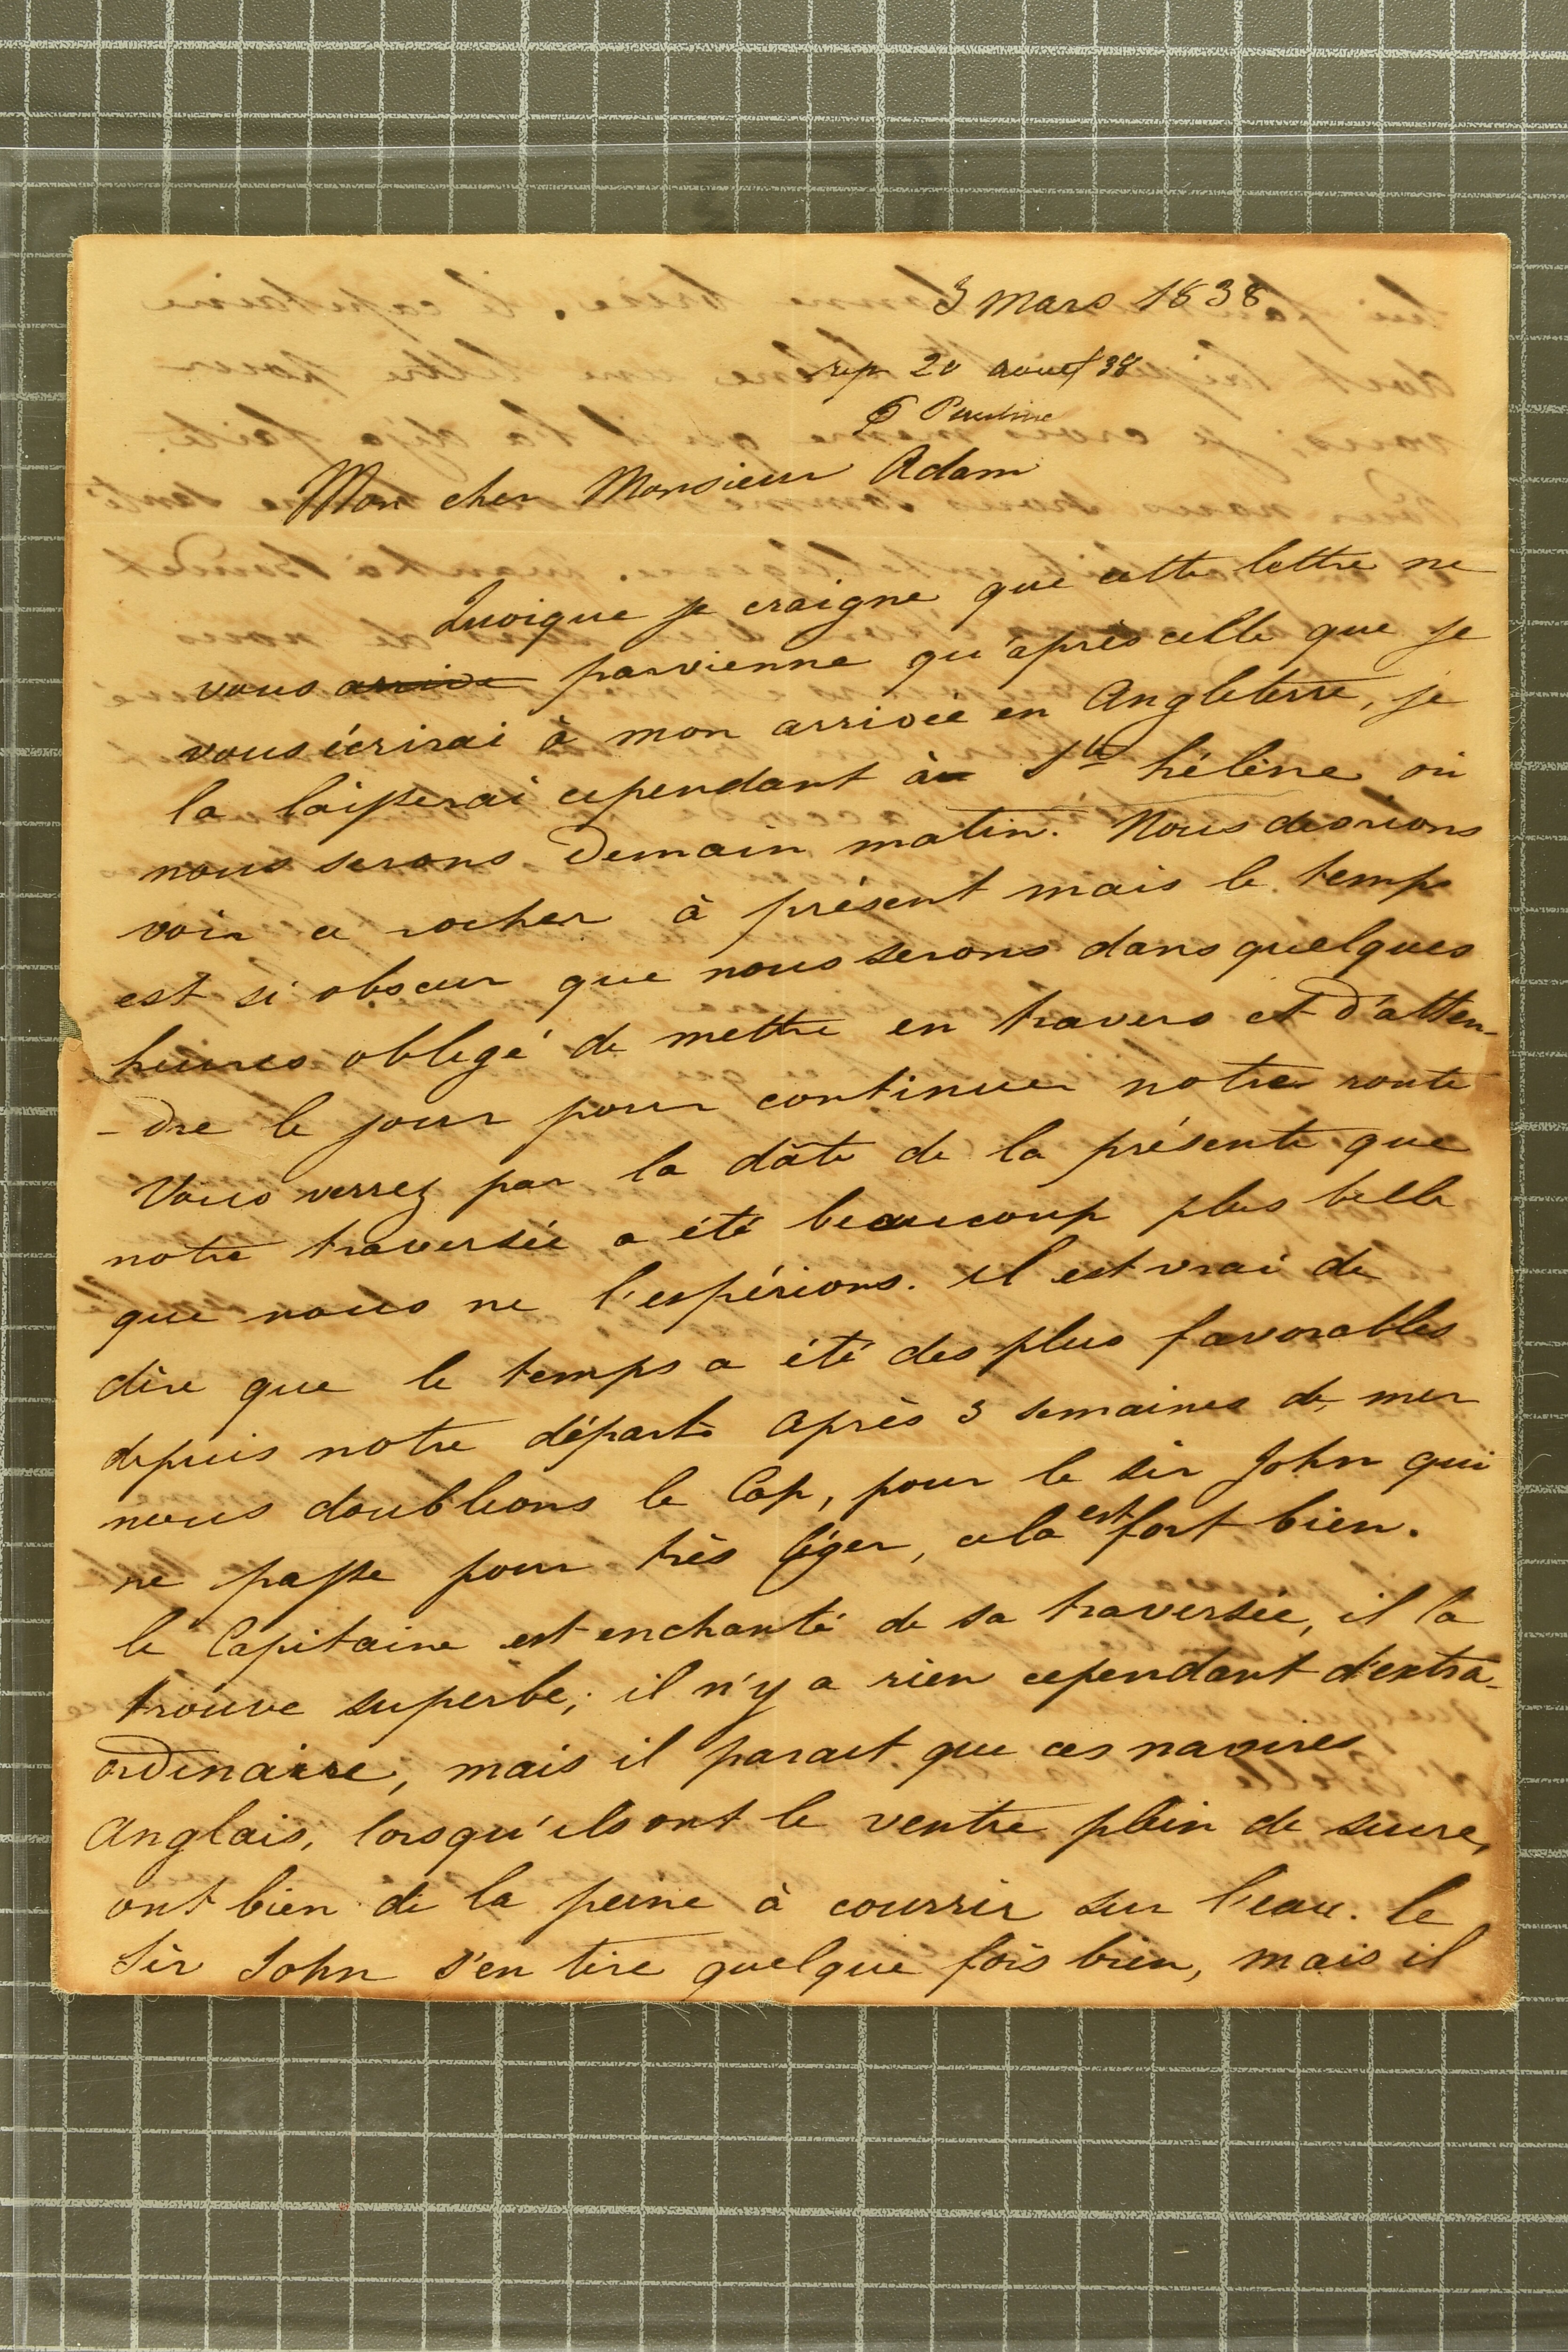 3 Mars 1838
rep 20 aout 38
Pauline
Mon cher Monsieur Adam
Quoique je craigne que cette lettre ne
vous arrive parvienne qu'après celle que je
vous écrirai à mon arrivée en Angleterre, je
la laisserai cependant à Ste hélène où
nous serons demain matin. Nous devrions
voir ce rocher à présent mais le temps
est si obscur que nous serons dans quelques
heures obligé de mettre en travers et d'atten-
-dre le jour pour continuer notre route
Vous verrez par la dâte de la présente que
notre traversée a été beaucoup plus belle
que nous ne l'espérions. il est vrai de
dire que le temps a été des plus favorables
depuis notre départ. après 3 semaines de mer
nous doublions le Cap, pour le Sir John qui
ne passe pour très léger, cela est fort bien.
le Capitaine est enchanté de sa traversée, il la
trouve superbe; il n'y a rien cependant d'extra-
ordinaire, mais il parait que ces navires
Anglais, lorsqu'ils ont le ventre plein de sucre,
ont bien de la peine à courrir sur l'eau. le
Sir John s'en tire quelque fois bien, mais il